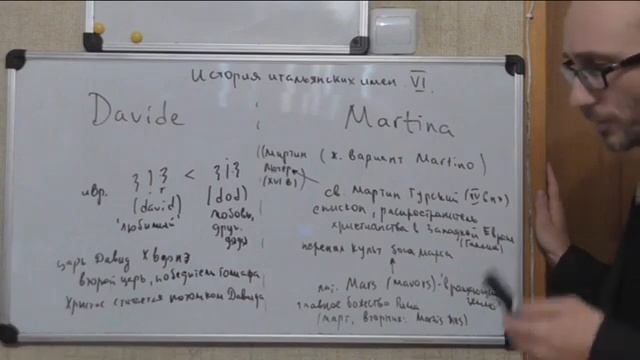 История итальянских имен VI.
Davide
ивр.
(david)
"любимый"
<
(dod)
любовь,
друг,
дядя
царь Давид X в до нэ
второй царь, победитель Голиафа
Христос считается потомком Давида
Martina
(ж. вариант Martino)
(Мартин
Лютер
(XVI в)
св. Мартин Турский (IV в нэ)
епископ, распространитель
христианства в Западной Европе
(Галлия)
перенял культ бога Марса
лат. Mars (mavors) -
главное божество Рима
(март, вторник: